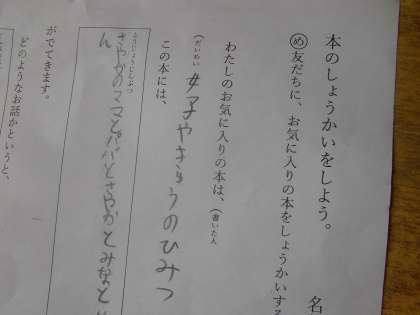 本のしょうかいをしよう。
名
め友だちに、お気に入りの本をしょうかいする
わたしのお気に入りの本は、(書いた人
(だいめい
女子やきゅうのひみつ
この本には、
とうじょうじんぶつ
さやかのママとパパとさやかとみなと
ん
がでてきます。
どのようなお話かというと、